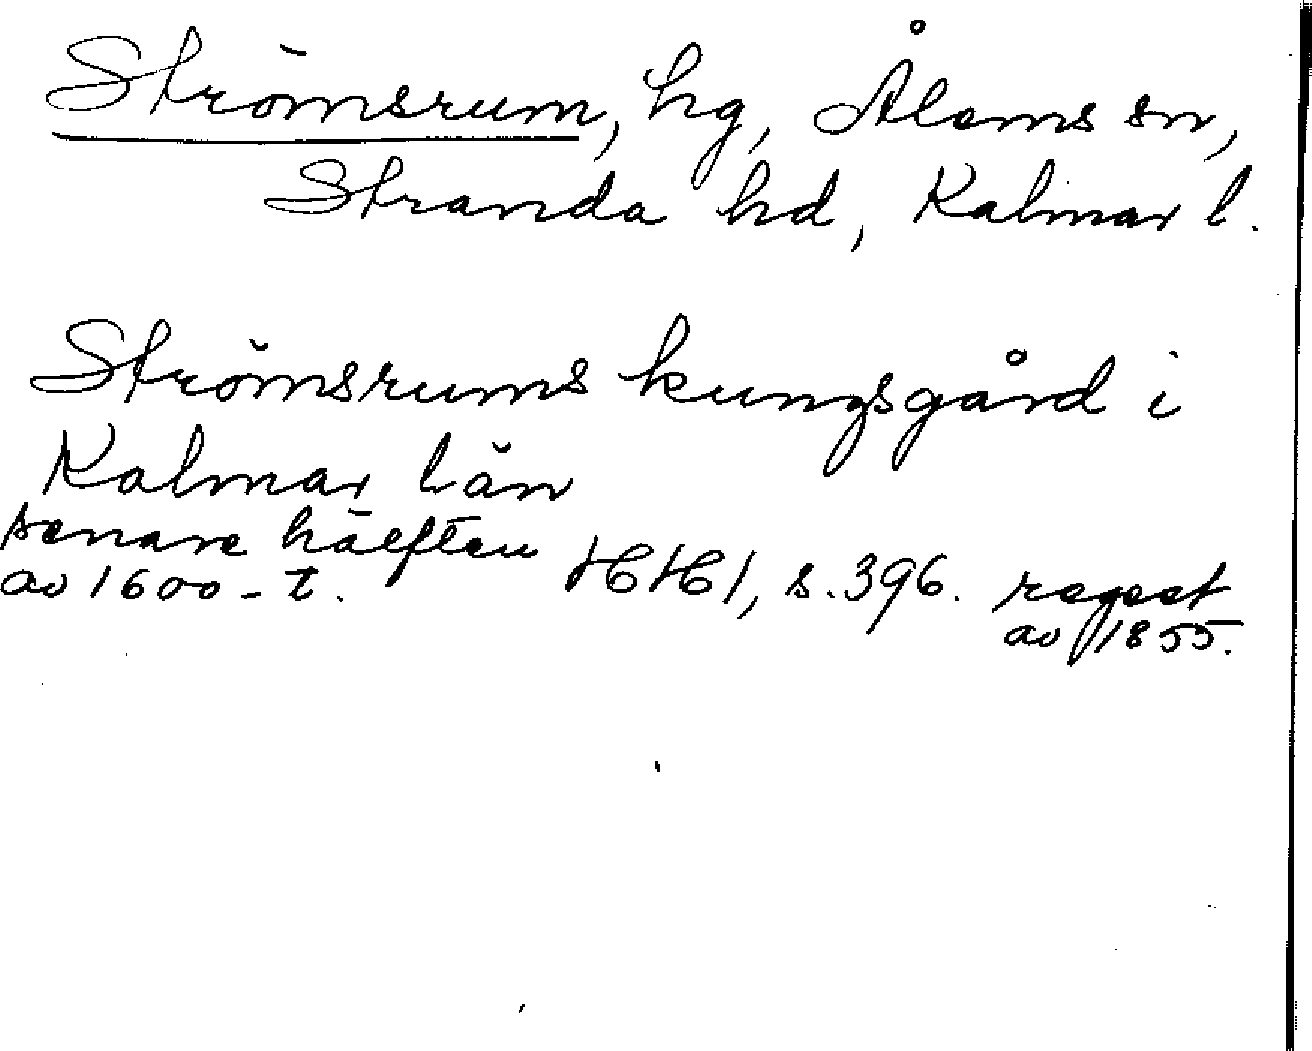 Strömsrum, hg, Ålems sn,
Stranda hd, Kalmar l.
Strömsrums kungsgård i
Kalmar län
senare hälften
av 1600-t. HH1, s. 396. regest
av 1855.